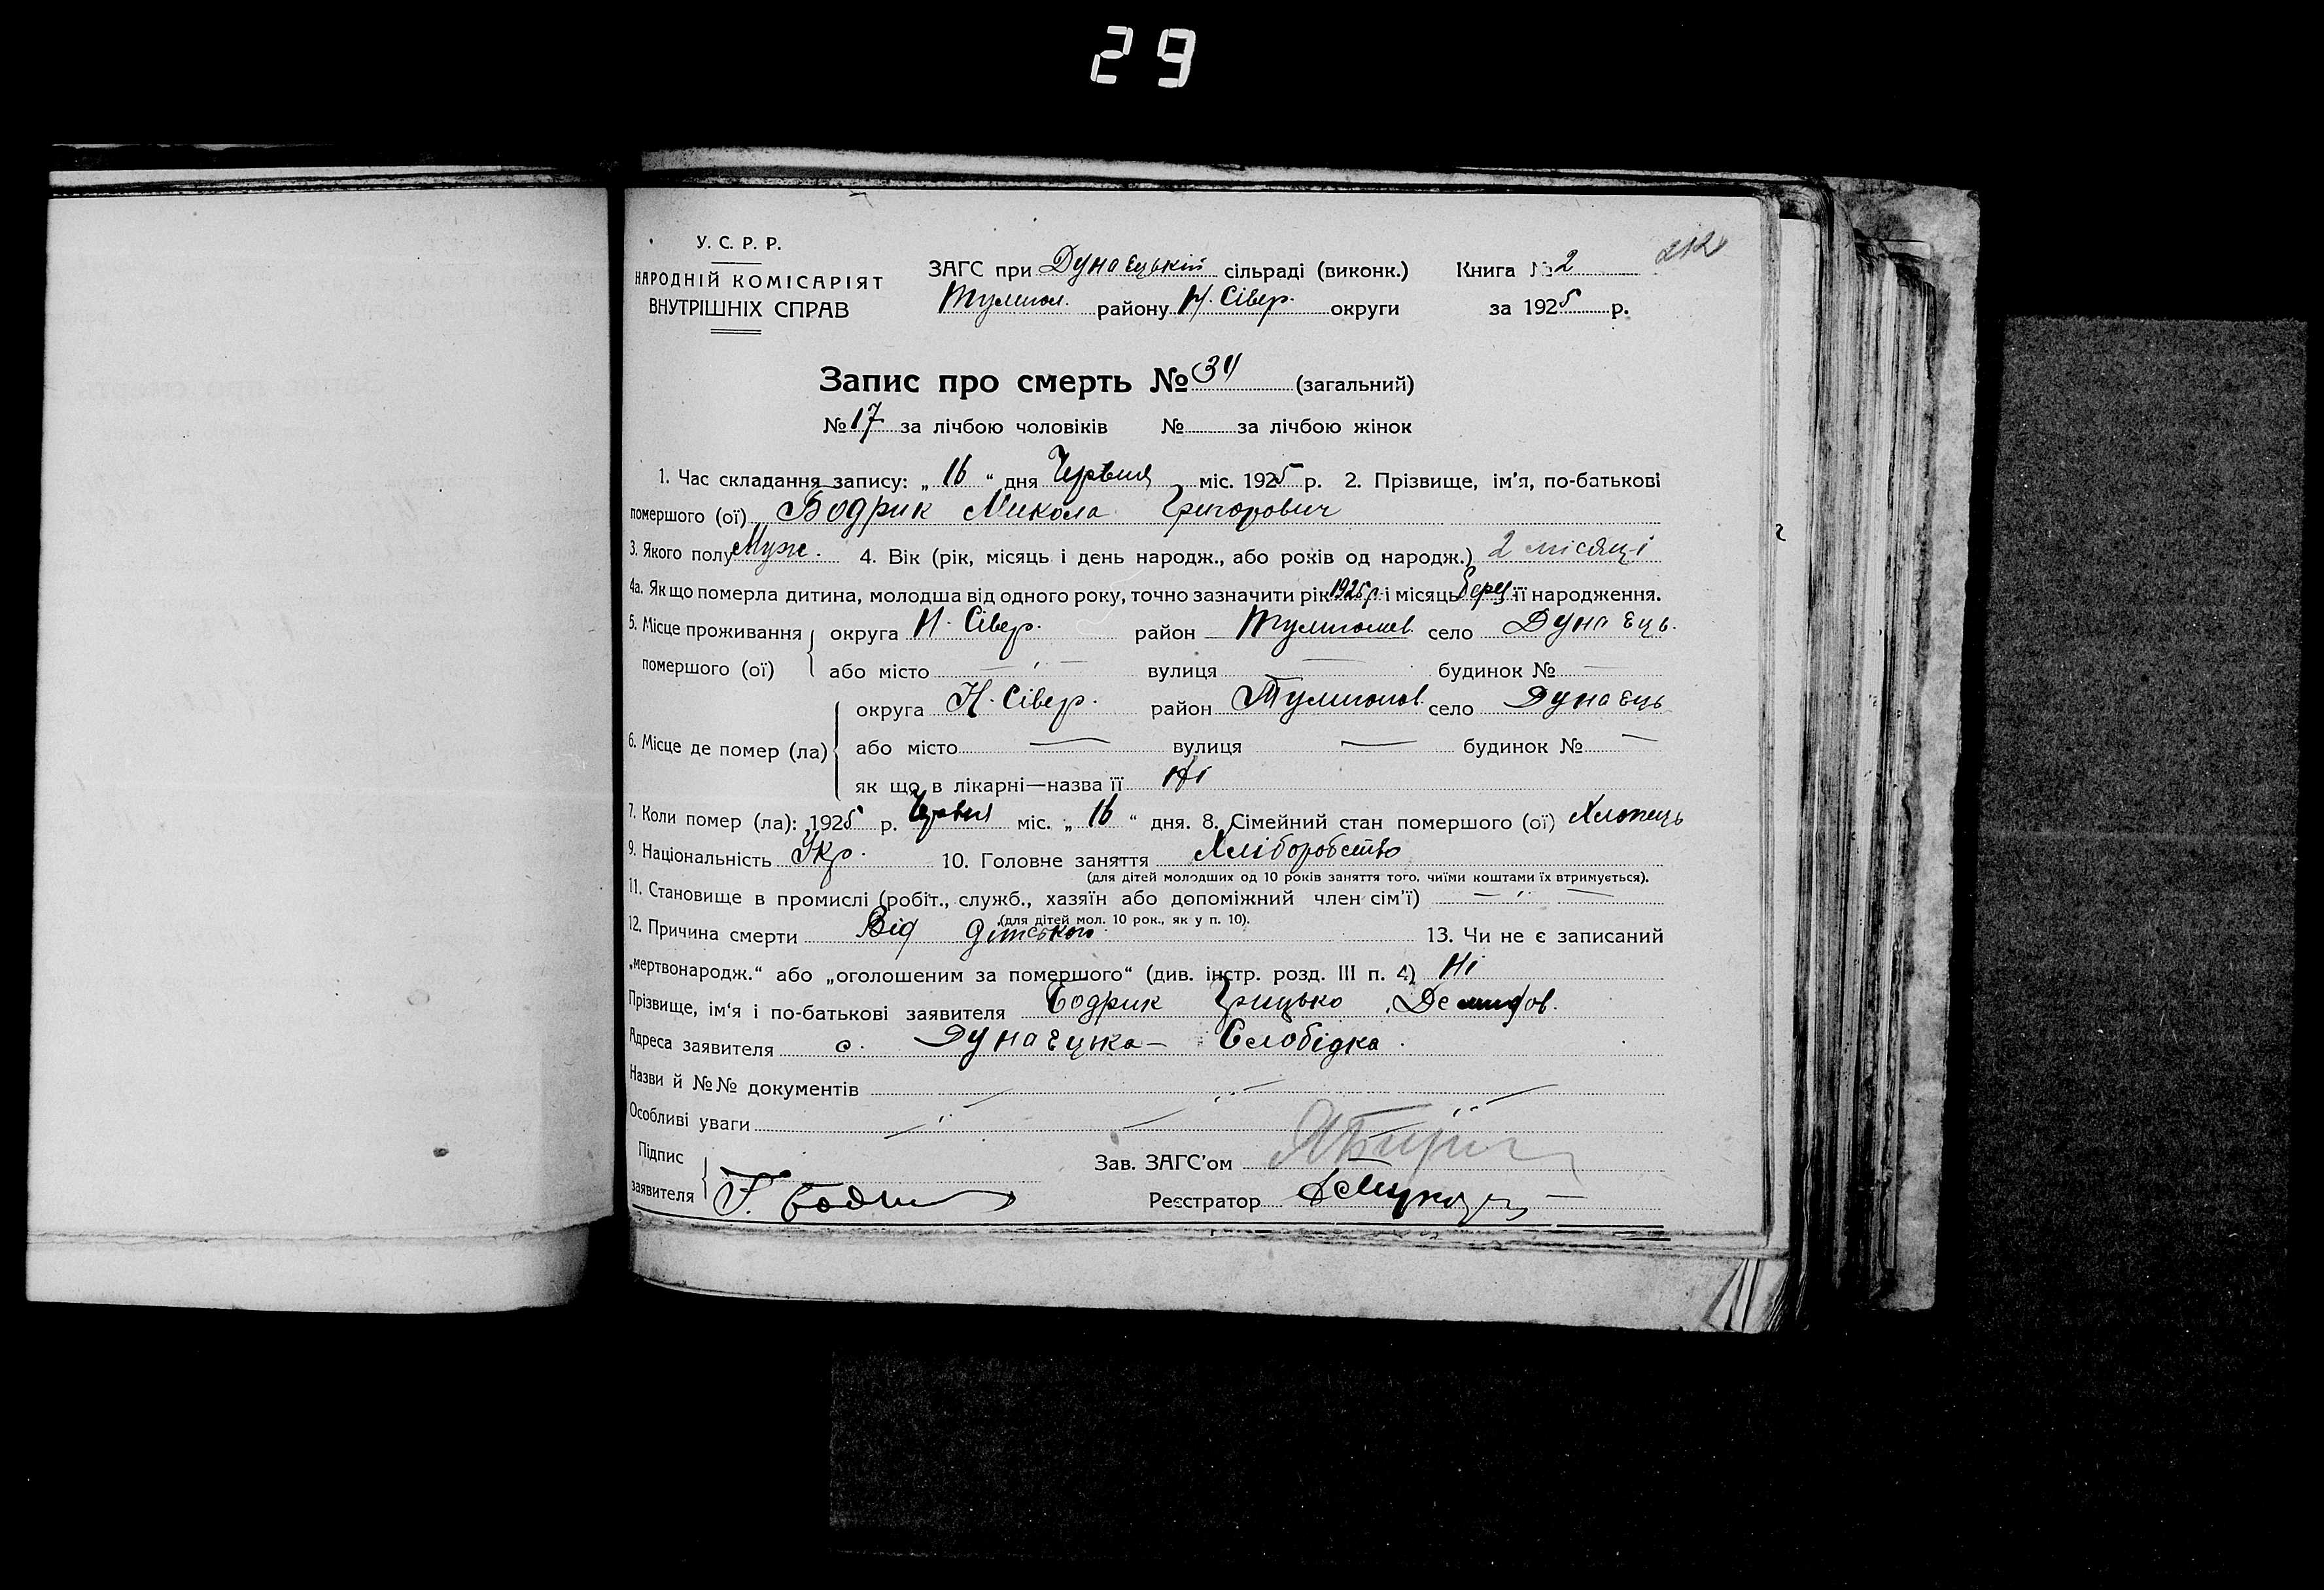 29
212
У. С. Р. Р.
НАРОДНІЙ КОМІСАРІЯТ
ВНУТРІШНІХ СПРАВ
ЗАГС при Дунаєцькій сільраді (виконк.) Книга № 2
Тулигол. району Н. Сівер. округи за 1925 р.
Запис про смерть № 31 (загальний)
№ 17 за лічбою чоловіків № за лічбою жінок
1. Час складання запису: „ 16 “ дня Червня міс. 1925 р. 2. Прізвище, ім'я, по-батькові
помершого (ої) Бодрик Микола Григорович
3. Якого полу Муж. 4. Вік (рік, місяць і день народж., або років од народж.) 2 місяці
4а. Як що померла дитина, молодша від одного року, точно зазначити рік 1925 р. і місяць Берез. її народження.
5. Місце проживання округа Н. Сівер. район Тулиголов. село Дунаєць.
помершого (ої) або місто — вулиця — будинок № —
округа Н. Сівер. район Тулиголов. село Дунаєць
6. Місце де помер (ла) або місто — вулиця — будинок № —
як що в лікарні—назва її Ні
7. Коли помер (ла): 1925 р. Червня міс. „ 16 “ дня. 8. Сімейний стан помершого (ої) Хлопець
9. Національність Укр. 10. Головне заняття Хліборобство
(для дітей молодших од 10 років заняття того, чиїми коштами їх втримується).
11. Становище в промислі (робіт., служб., хазяїн або допоміжний член сім'ї) — „ —
(для дітей мол. 10 рок., як у п. 10).
12. Причина смерти Від дітського 13. Чи не є записаний
„мертвонародж.“ або „оголошеним за помершого“ (див. інстр. розд. III п. 4) Ні
Прізвище, ім'я і по-батькові заявителя Бодрик Грицько Демидов.
Адреса заявителя с. Дунаєцька - Слобідка
Назви й №№ документів — „ —
Особливі уваги — „ — „ —
Підпис
заявителя Г. Бодри
Зав. ЗАГС'ом
Реєстратор